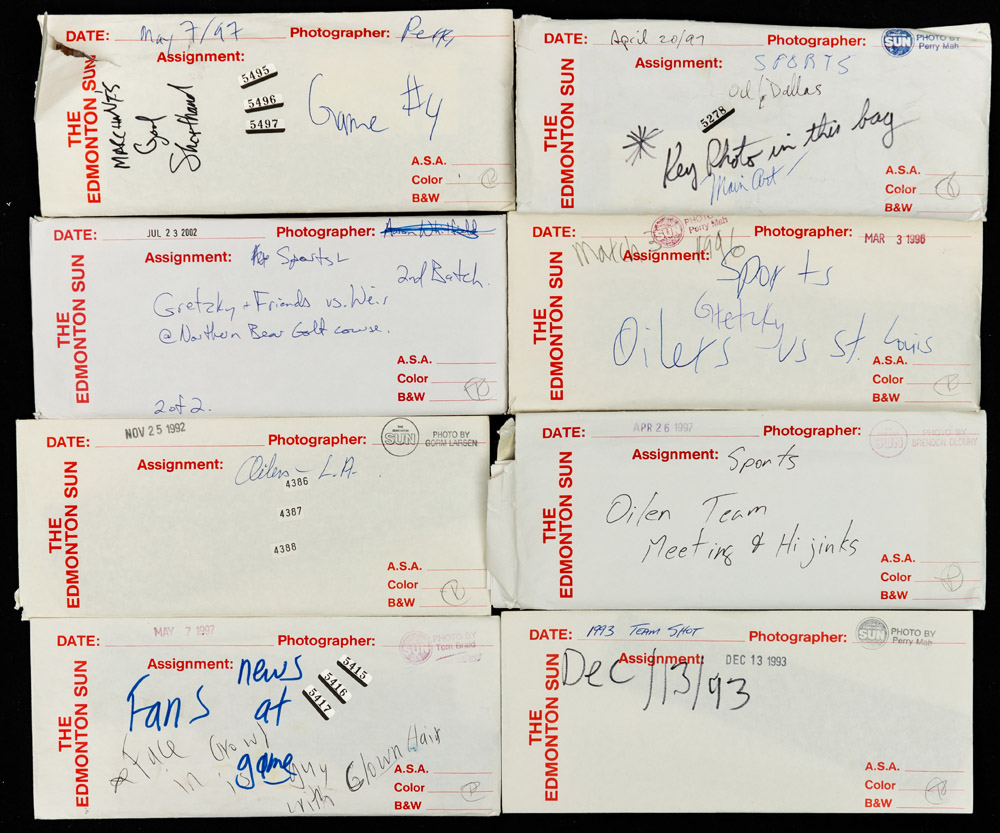 DATE: May 7/97 Photographer: Perry
Assignment:
THE EDMONTON SUN
MARCHANT'S
Good
Shorthand
5495
5496
5497
Game #4
A.S.A.
Color
B&W
DATE: April 20/97 Photographer: SUN PHOTO BY Perry Mah
Assignment: SPORTS
Oil/Dallas
THE EDMONTON SUN
5278
Key Photo in this bag
Main Art
A.S.A.
Color
B&W
DATE: JUL 23 2002 Photographer:
Assignment: Sports
2nd Batch.
THE EDMONTON SUN
Gretzky + Friends vs. Weir
@ Northern Bear Golf course.
2 of 2.
A.S.A.
Color
B&W
DATE: March 3 1996 SUN PHOTO BY Perry Mah Photographer: MAR 3 1996
Assignment: Sports
THE EDMONTON SUN
Gretzky
Oilers vs St. Louis
A.S.A.
Color
B&W
DATE: NOV 25 1992 Photographer: SUN PHOTO BY GORM LARSEN
Assignment: Oilers - L.A.
THE EDMONTON SUN
4386
4387
4388
A.S.A.
Color
B&W
DATE: APR 26 1997 Photographer: PHOTO BY BRENDON DLOUHY
Assignment: Sports
THE EDMONTON SUN
Oiler Team
Meeting & Hijinks
A.S.A.
Color
B&W
DATE: MAY 7 1997 Photographer: SUN PHOTO BY Tom Braid
Assignment: news
THE EDMONTON SUN
5415
5416
5417
Fans at
game
Face in Crowd
is guy
with Clown Hair
A.S.A.
Color
B&W
DATE: 1993 TEAM SHOT Photographer: SUN PHOTO BY Perry Mah
Assignment: DEC 13 1993
Dec/13/93
THE EDMONTON SUN
A.S.A.
Color
B&W